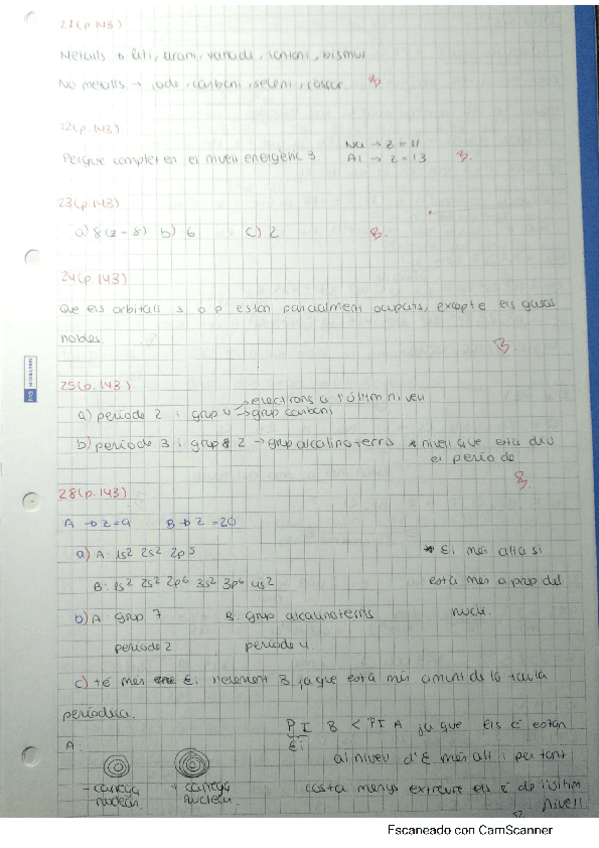 21(p.143)
Metalls → liti, urani, vanadi, lantani, bismut
No metalls → iode, carboni, seleni, fòsfor. B
22(p.143)
Na → Z = 11
Perquè completen el nivell energètic 3. Al → Z = 13 B.
23(p.143)
a) 8 (2-8) b) 6 c) 2 B.
24(p.143)
Que els orbitals s o p estan parcialment ocupats, excepte els gasos
nobles. B.
25(p.143)
→ electrons a l'últim nivell
a) període 2 i grup 4 → grup carboni
b) període 3 i grup 2 → grup alcalinoterris * nivell que està dió
el període.
B.
28(p.143)
A → Z=9 B → Z=20
a) A: 1s² 2s² 2p⁵ * Ei més alta si
B: 1s² 2s² 2p⁶ 3s² 3p⁶ 4s² està més a prop del
b) A: grup 7 B: grup alcalinoterris nucli.
període 2 període 4.
c) té més Ei l'element B ja que està més amunt de la taula
periòdica.
PI B < PI A ja que els e⁻ estan
A: Ei
al nivell d'E més alt i per tant
- càrrega + càrrega costa menys extreure els e⁻ de l'últim
nuclear. nuclear. nivell
Escaneado con CamScanner